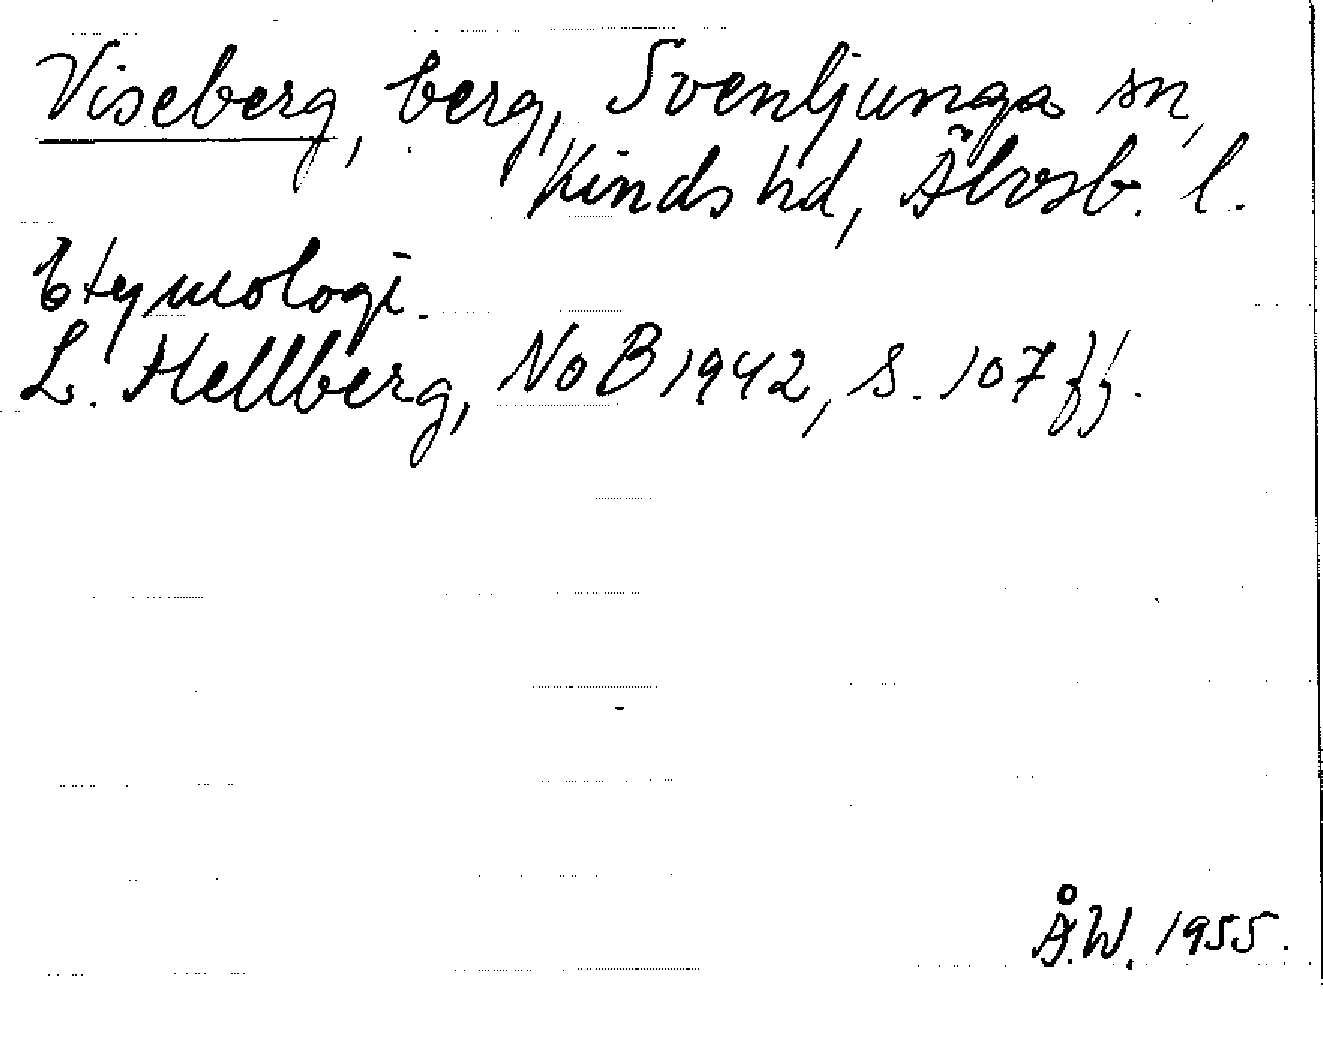 Viseberg, berg, Svenljunga sn,
Kinds hd, Älvsb. l.
Etymologi.
L. Hellberg, NoB 1942, s. 107 ff.
Å.W. 1955.